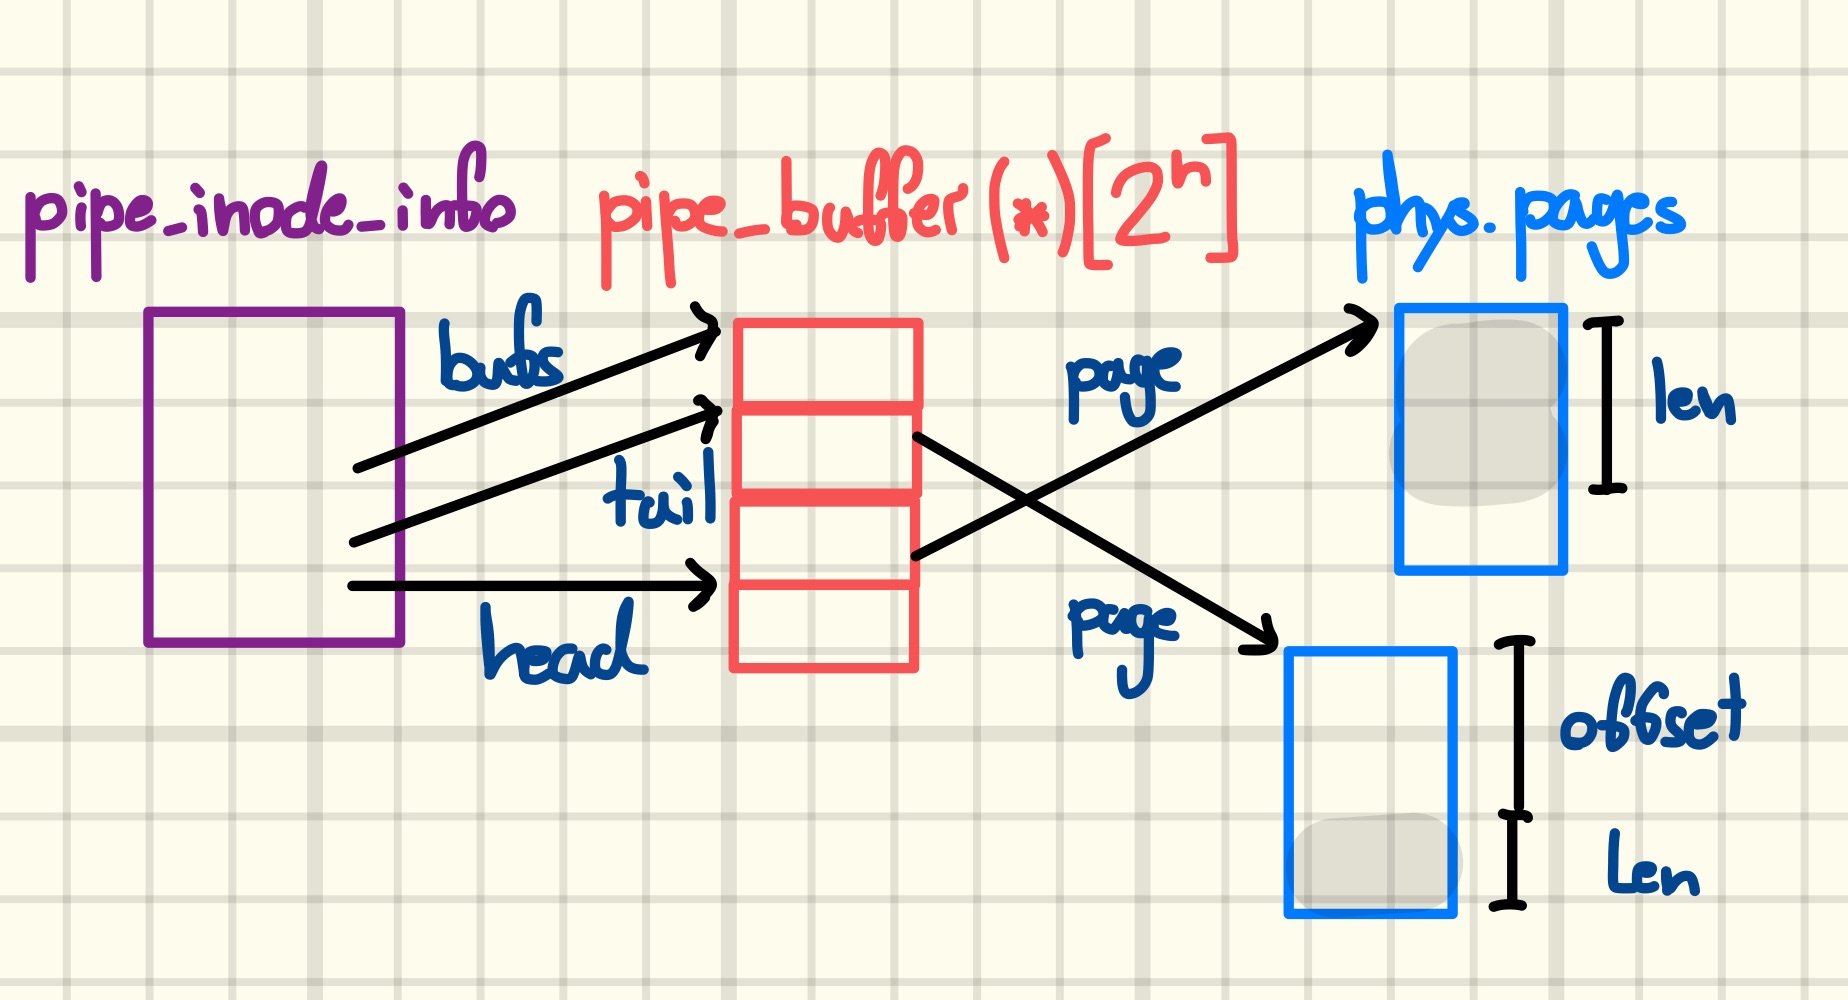 pipe_inode_info
pipe_buffer (*)[2ⁿ]
phys. pages
bufs
tail
head
page
page
len
offset
Len